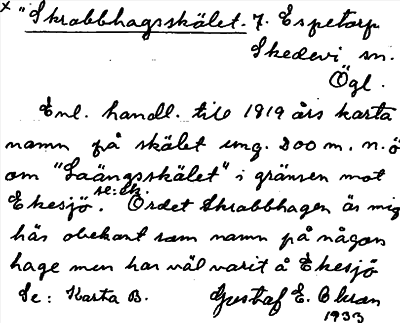 x "Skrabbhagsskälet. 7. Espetorp
Skedevi sn.
Ögl.
Enl. handl. till 1819 års karta
namn på skälet ung. 200 m. n.ö
om "Laängsskälet" i gränsen mot
Ekesjö se:sk. Ordet Skrabbhagen är mig
här obekant som namn på någon
hage men har väl varit å Ekesjö
Se: Karta B. Gustaf E. Ekman
1933